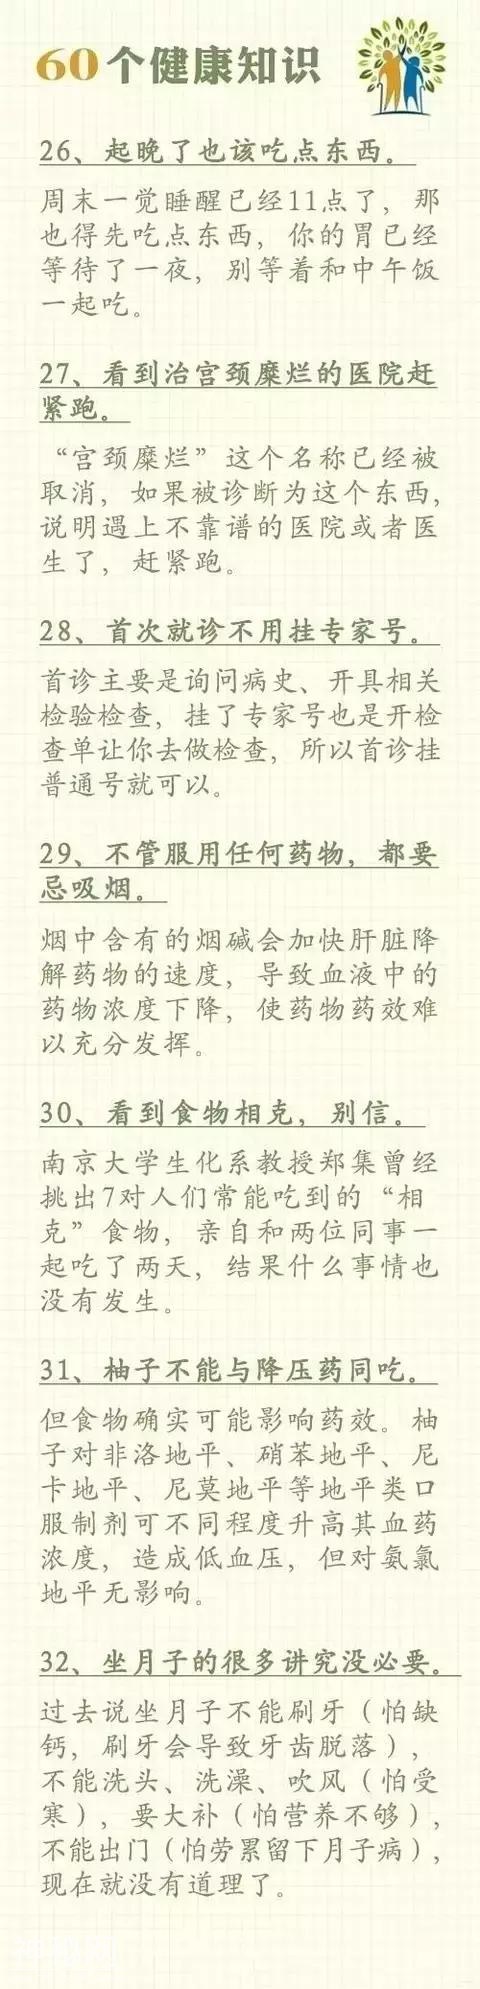 60个健康知识
26、起晚了也该吃点东西。
周末一觉睡醒已经11点了，那
也得先吃点东西，你的胃已经
等待了一夜，别等着和中午饭
一起吃。
27、看到治宫颈糜烂的医院赶
紧跑。
“宫颈糜烂”这个名称已经被
取消，如果被诊断为这个东西，
说明遇上不靠谱的医院或者医
生了，赶紧跑。
28、首次就诊不用挂专家号。
首诊主要是询问病史、开具相关
检验检查，挂了专家号也是开检
查单让你去做检查，所以首诊挂
普通号就可以。
29、不管服用任何药物，都要
忌吸烟。
烟中含有的烟碱会加快肝脏降
解药物的速度，导致血液中的
药物浓度下降，使药物药效难
以充分发挥。
30、看到食物相克，别信。
南京大学生化系教授郑集曾经
挑出7对人们常能吃到的“相
克”食物，亲自和两位同事一
起吃了两天，结果什么事情也
没有发生。
31、柚子不能与降压药同吃。
但食物确实可能影响药效。柚
子对非洛地平、硝苯地平、尼
卡地平、尼莫地平等地平类口
服制剂可不同程度升高其血药
浓度，造成低血压，但对氨氯
地平无影响。
32、坐月子的很多讲究没必要。
过去说坐月子不能刷牙（怕缺
钙，刷牙会导致牙齿脱落），
不能洗头、洗澡、吹风（怕受
寒），要大补（怕营养不够），
不能出门（怕劳累留下月子病），
现在就没有道理了。